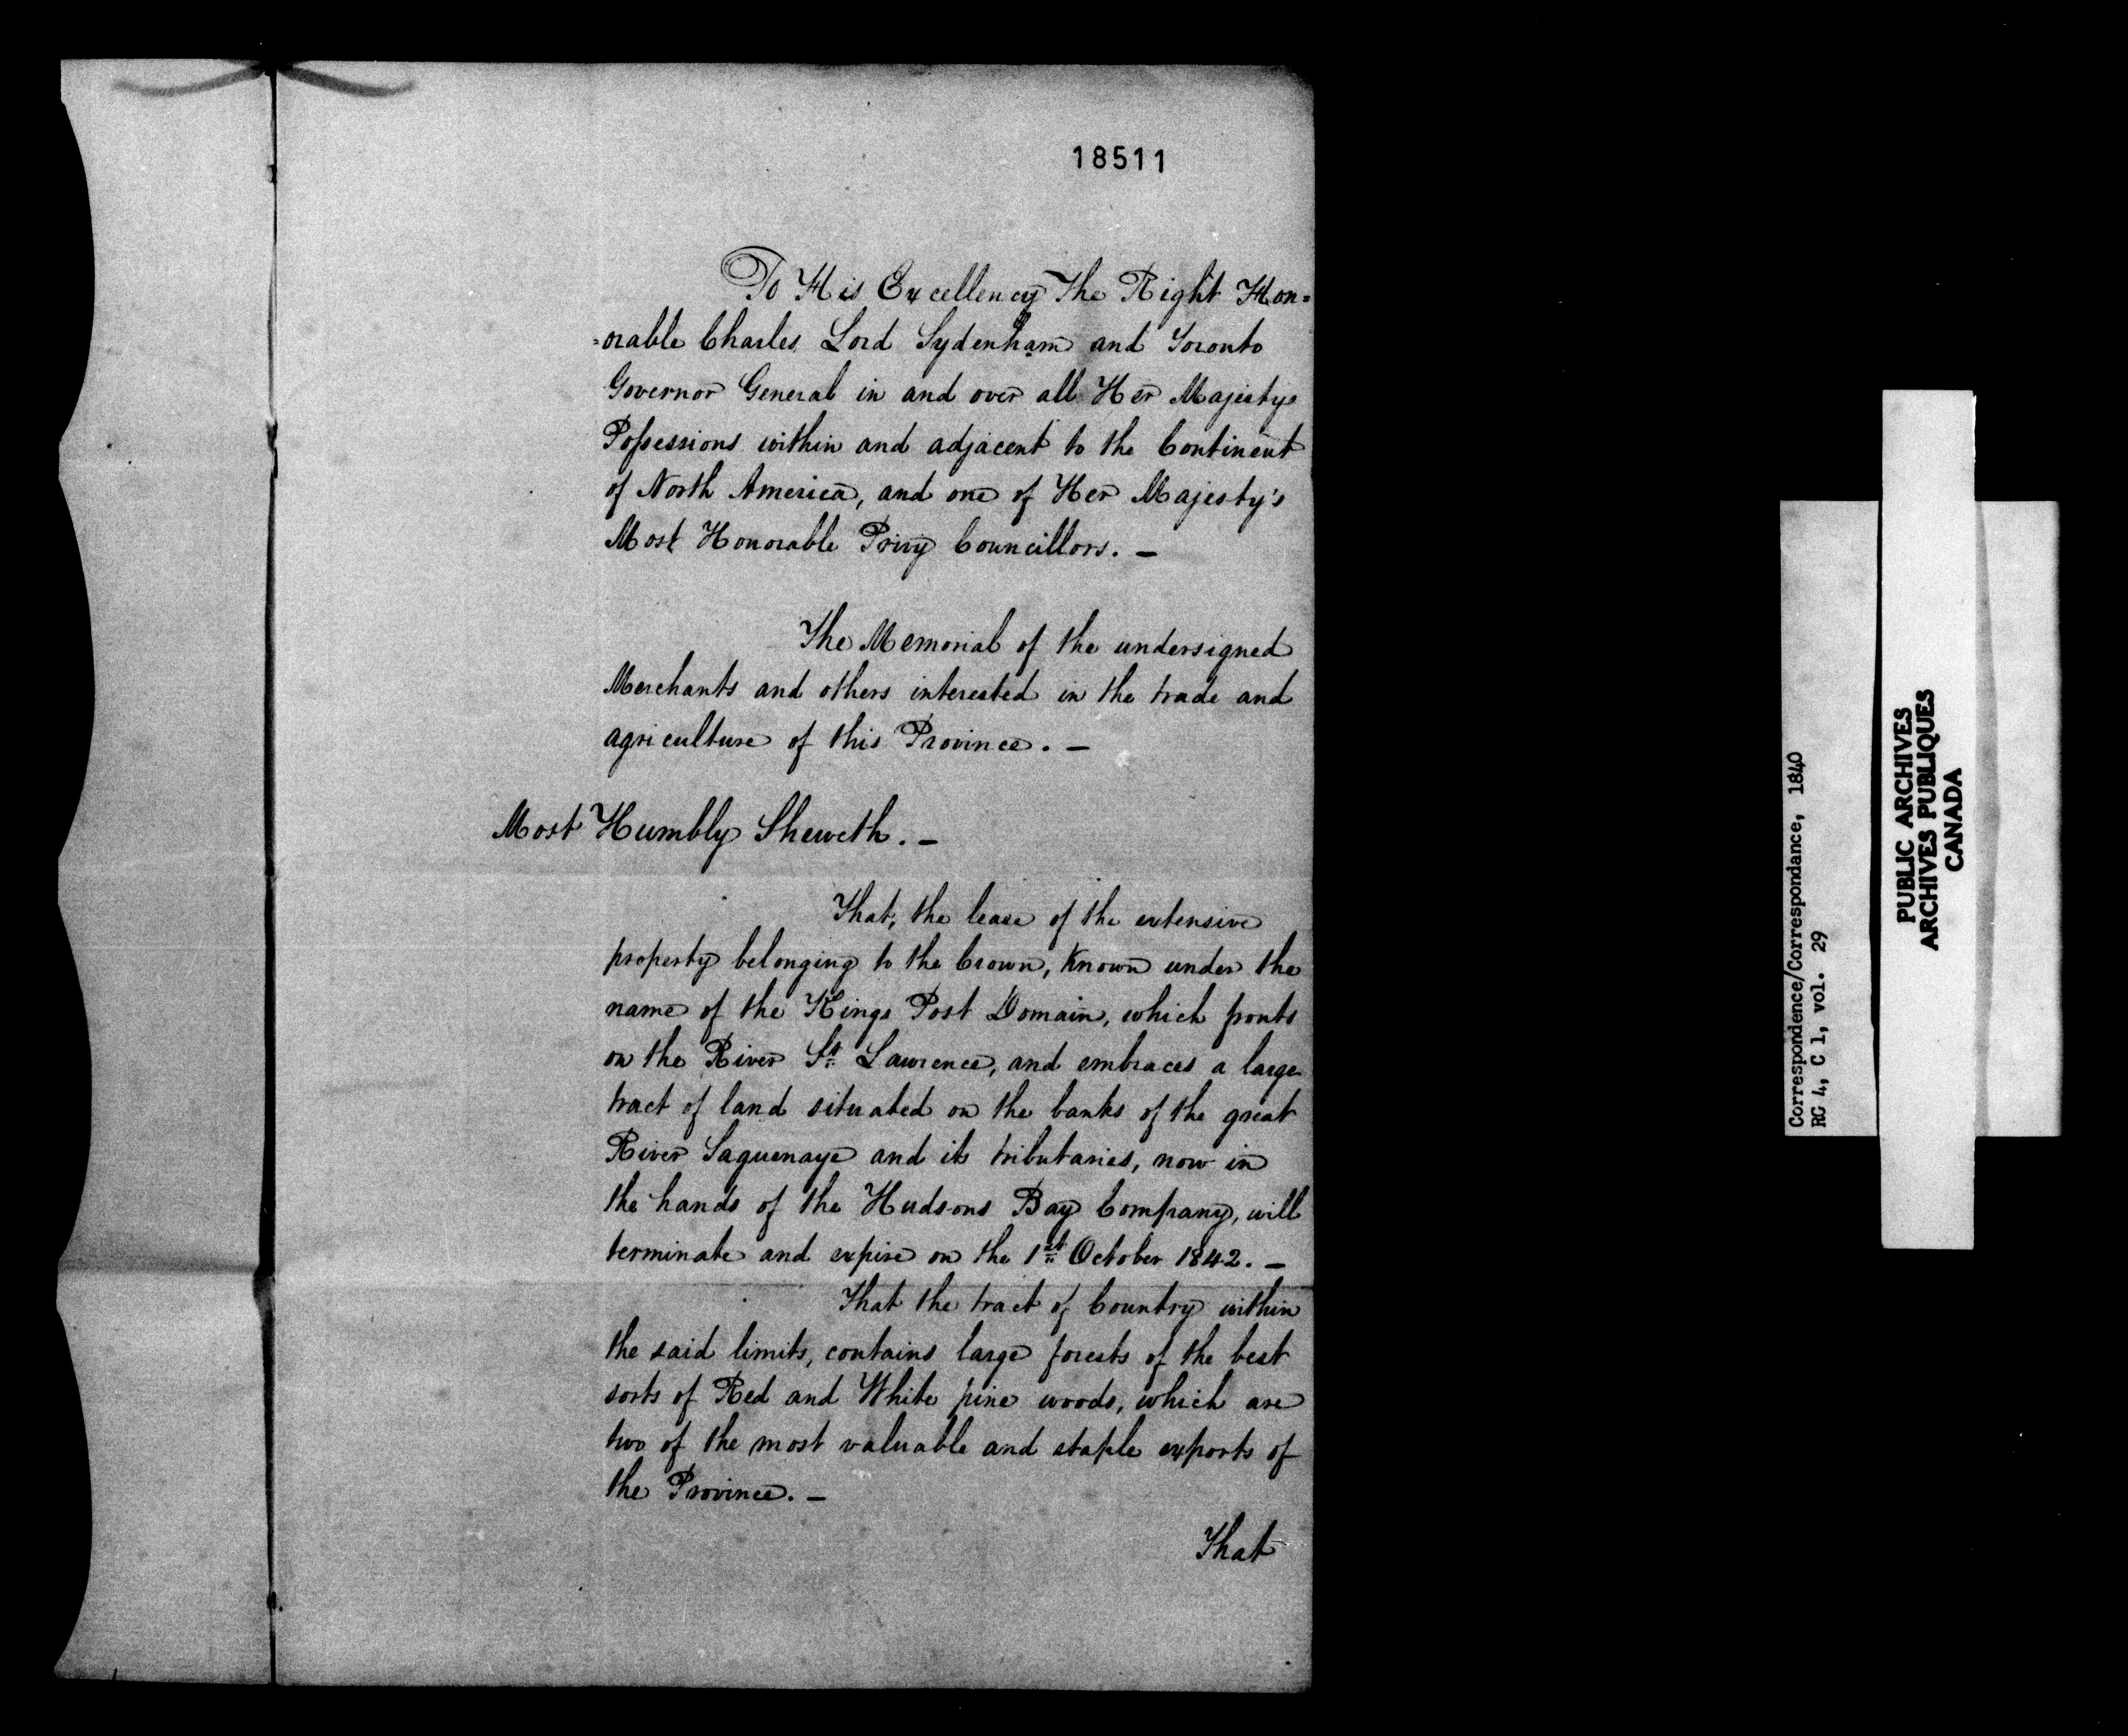 18511
To His Excellency The Right Hon=
=orable Charles Lord Sydenham and Toronto
Governor General in and over all Her Majestys
Possessions within and adjacent to the Continent
of North America, and one of Her Majesty's
Most Honorable Privy Councillors. —
The Memorial of the undersigned
Merchants and others interested in the trade and
agriculture of this Province. —
Most Humbly Sheweth. —
That, the lease of the extensive
property belonging to the Crown, known under the
name of the Kings Post Domain, which fronts
on the River St. Lawrence, and embraces a large
tract of land situated on the banks of the great
River Saguenaye and its tributaries, now in
the hands of the Hudsons Bay Company, will
terminate and expire on the 1st October 1842. —
That the tract of Country within
the said limits, contains large forests of the best
sorts of Red and White pine woods, which are
two of the most valuable and staple exports of
the Province. —
That
Correspondence/Correspondance, 1840
RG 4, C 1, vol. 29
PUBLIC ARCHIVES
ARCHIVES PUBLIQUES
CANADA